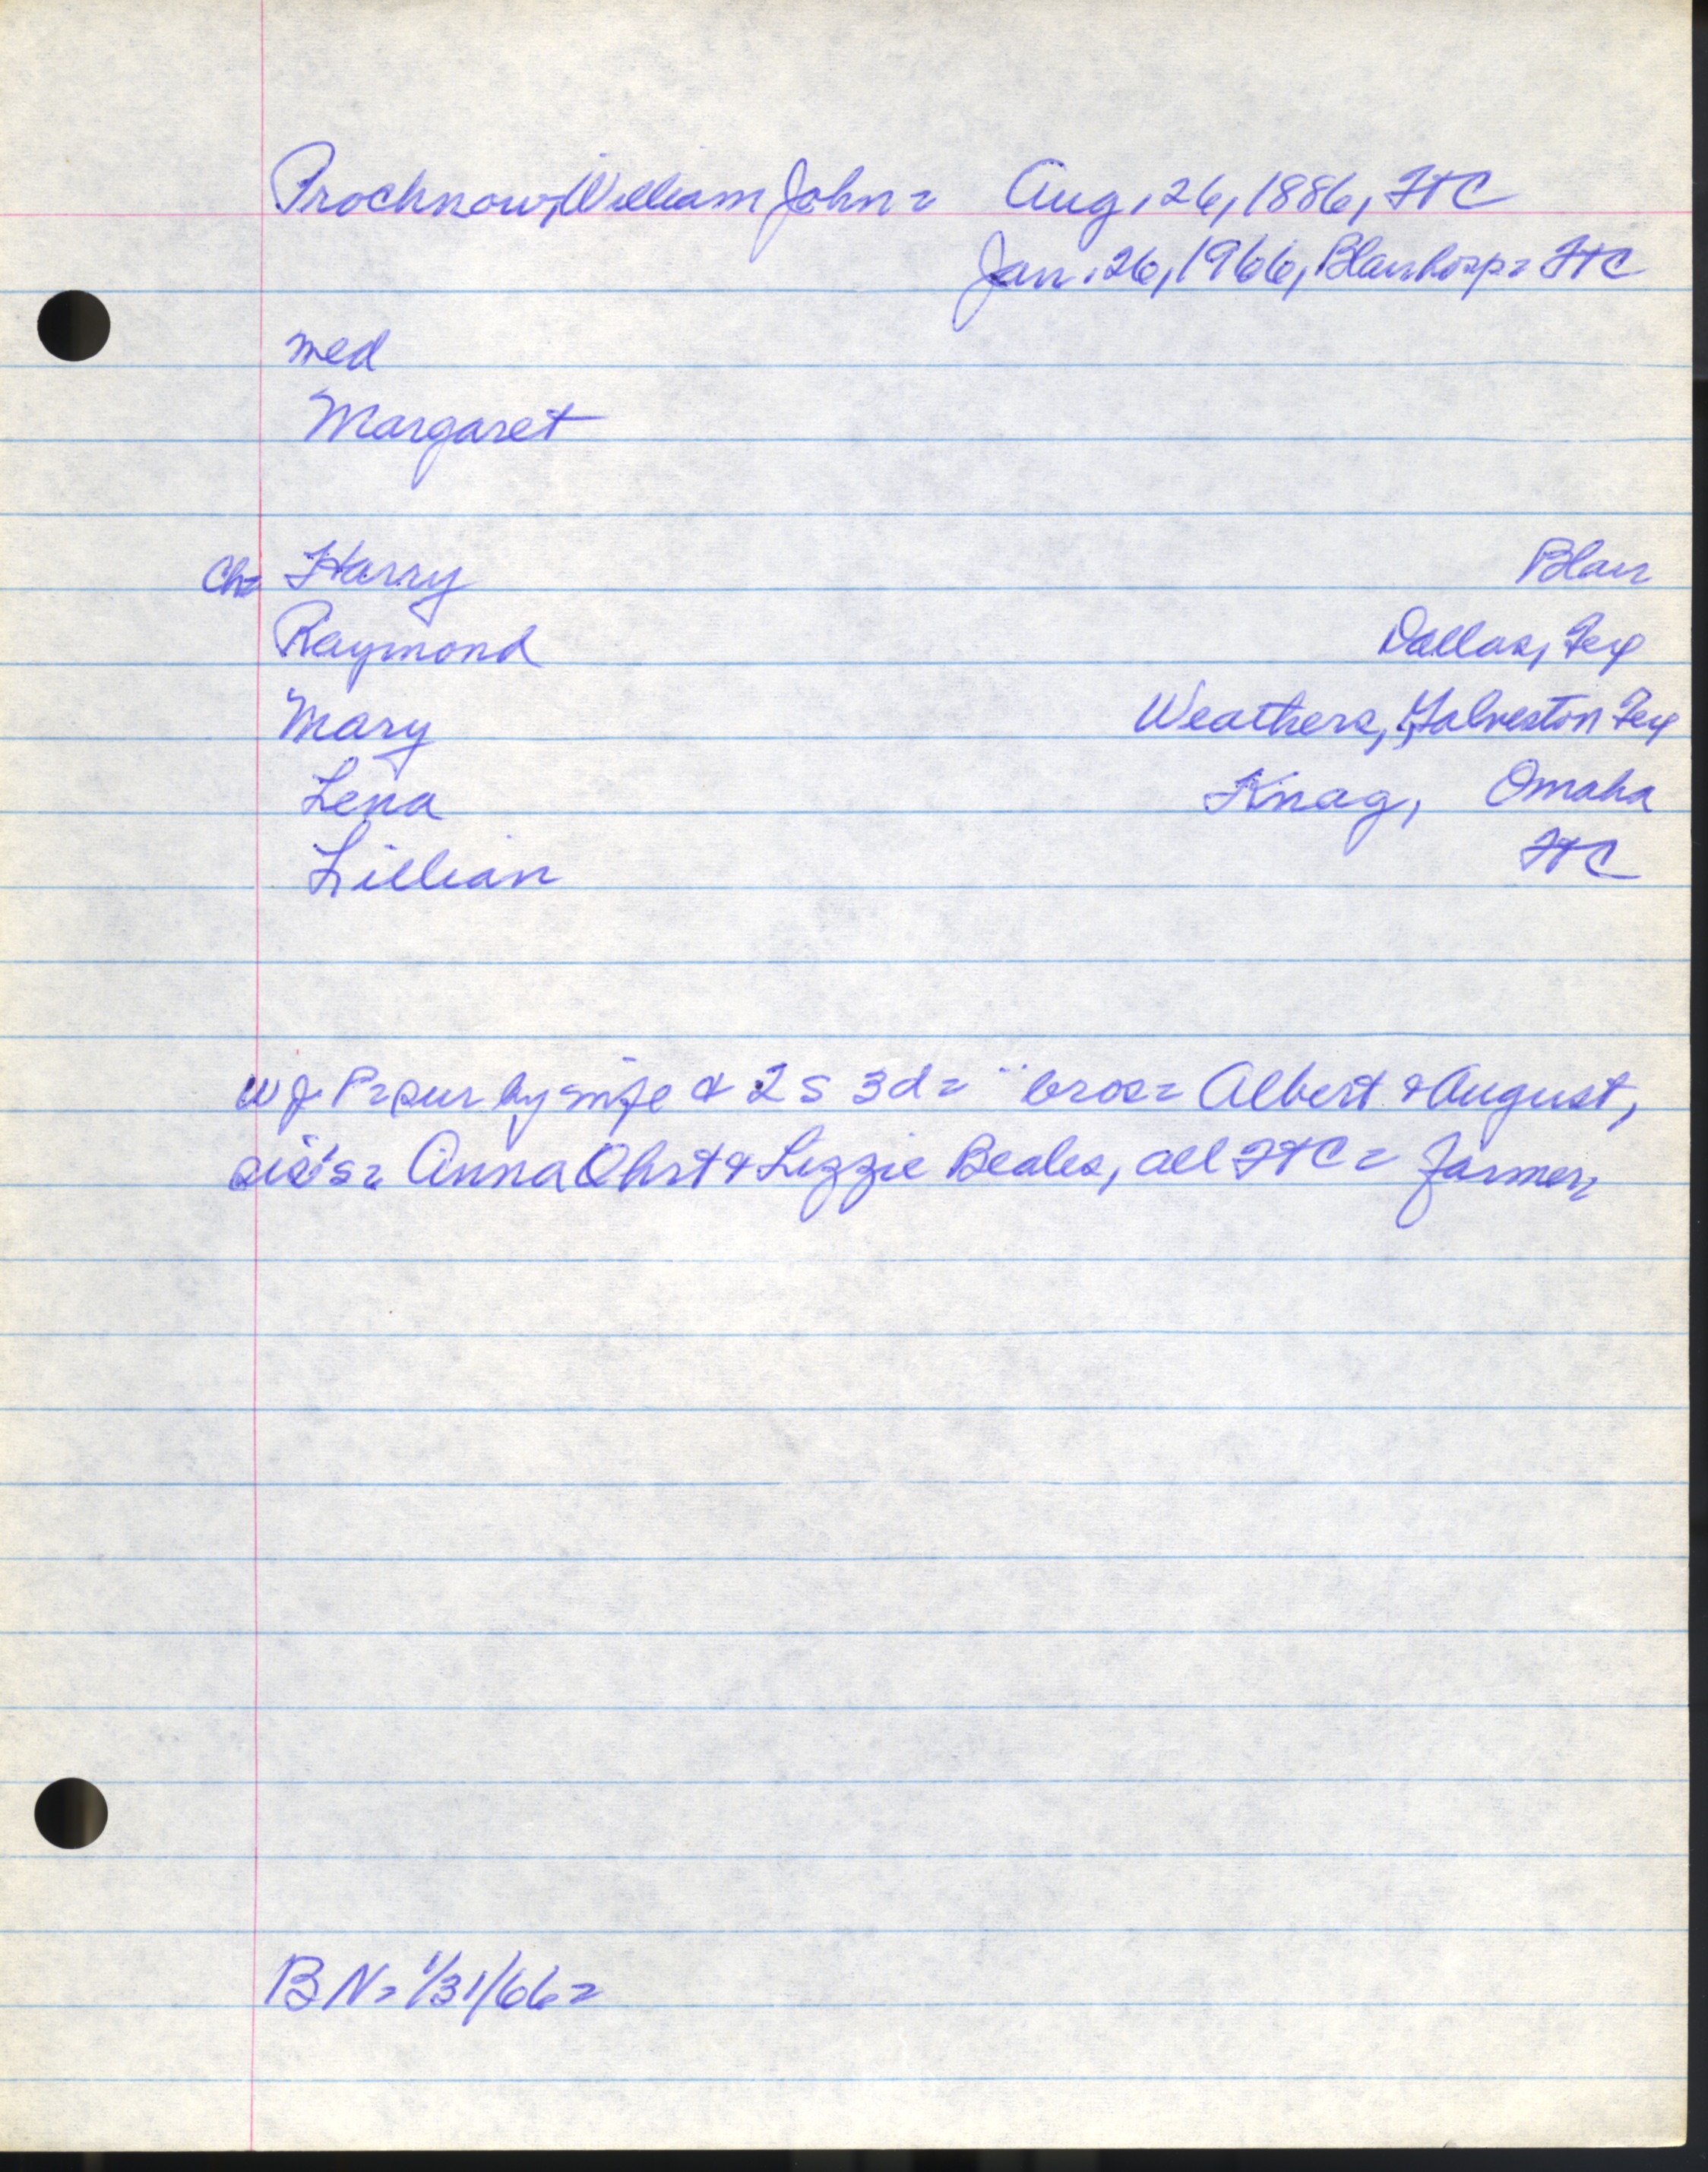 Prochnow, William John = Aug. 26, 1886, FtC
Jan. 26, 1966, Blair hosp = FtC
med
Margaret
Ch= Harry Blair
Raymond Dallas, Tex
Mary Weathers, Galveston Tex
Lena Knag, Omaha
Lillian FtC
WJ P= sur by wife & 2 s 3 d = " bros = Albert & August,
sis's = Anna Ohrt & Lizzie Beales, all FtC = farmer=
BN= 1/31/66=